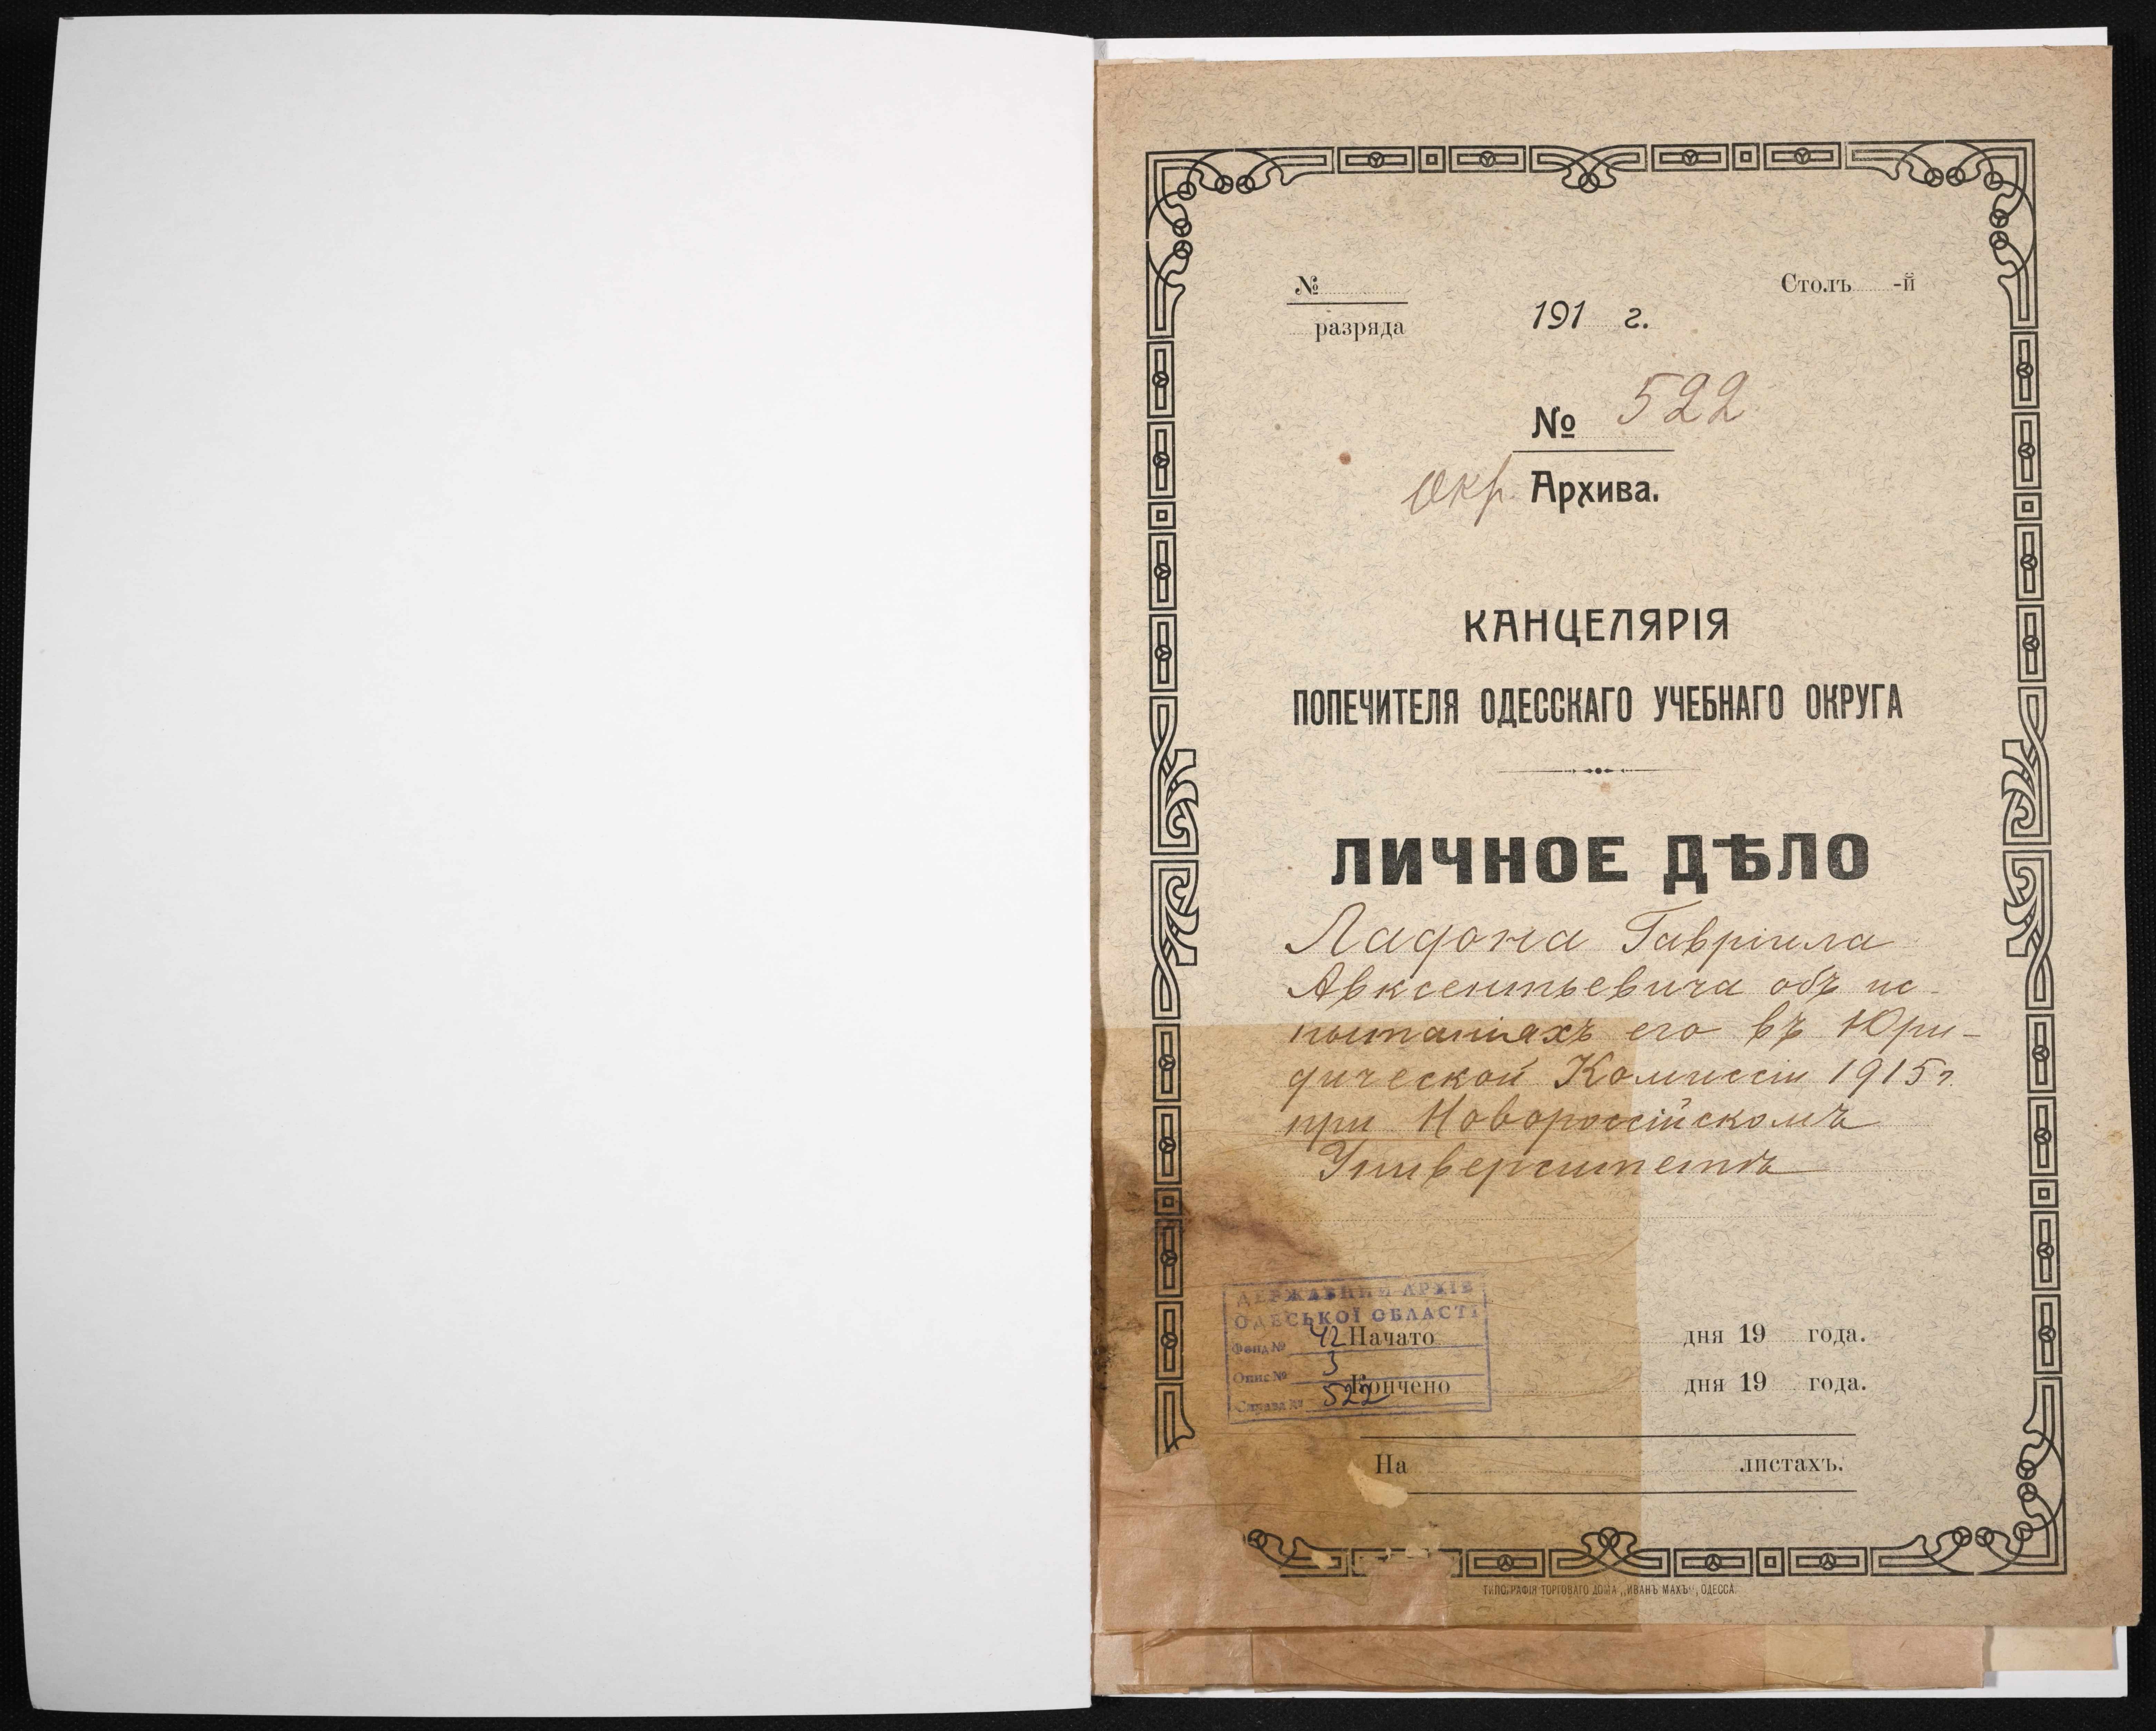 №
разряда
191 г.
Столъ -й
№ 522
Окр. Архива.
КАНЦЕЛЯРІЯ
ПОПЕЧИТЕЛЯ ОДЕССКАГО УЧЕБНАГО ОКРУГА
ЛИЧНОЕ ДѢЛО
Ладона Гавріила
Авксентьевича объ ис-
пытаніяхъ его въ Юри-
дической Комиссіи 1915 г.
при Новороссійскомъ
Университетѣ
ДЕРЖАВНИЙ АРХІВ
ОДЕСЬКОЇ ОБЛАСТІ
Фонд № 42
Опис № 3
Справа № 522
Начато дня 19 года.
Кончено дня 19 года.
На листахъ.
ТИПОГРАФІЯ ТОРГОВАГО ДОМА „ИВАНЪ МАХЪ“, ОДЕССА.